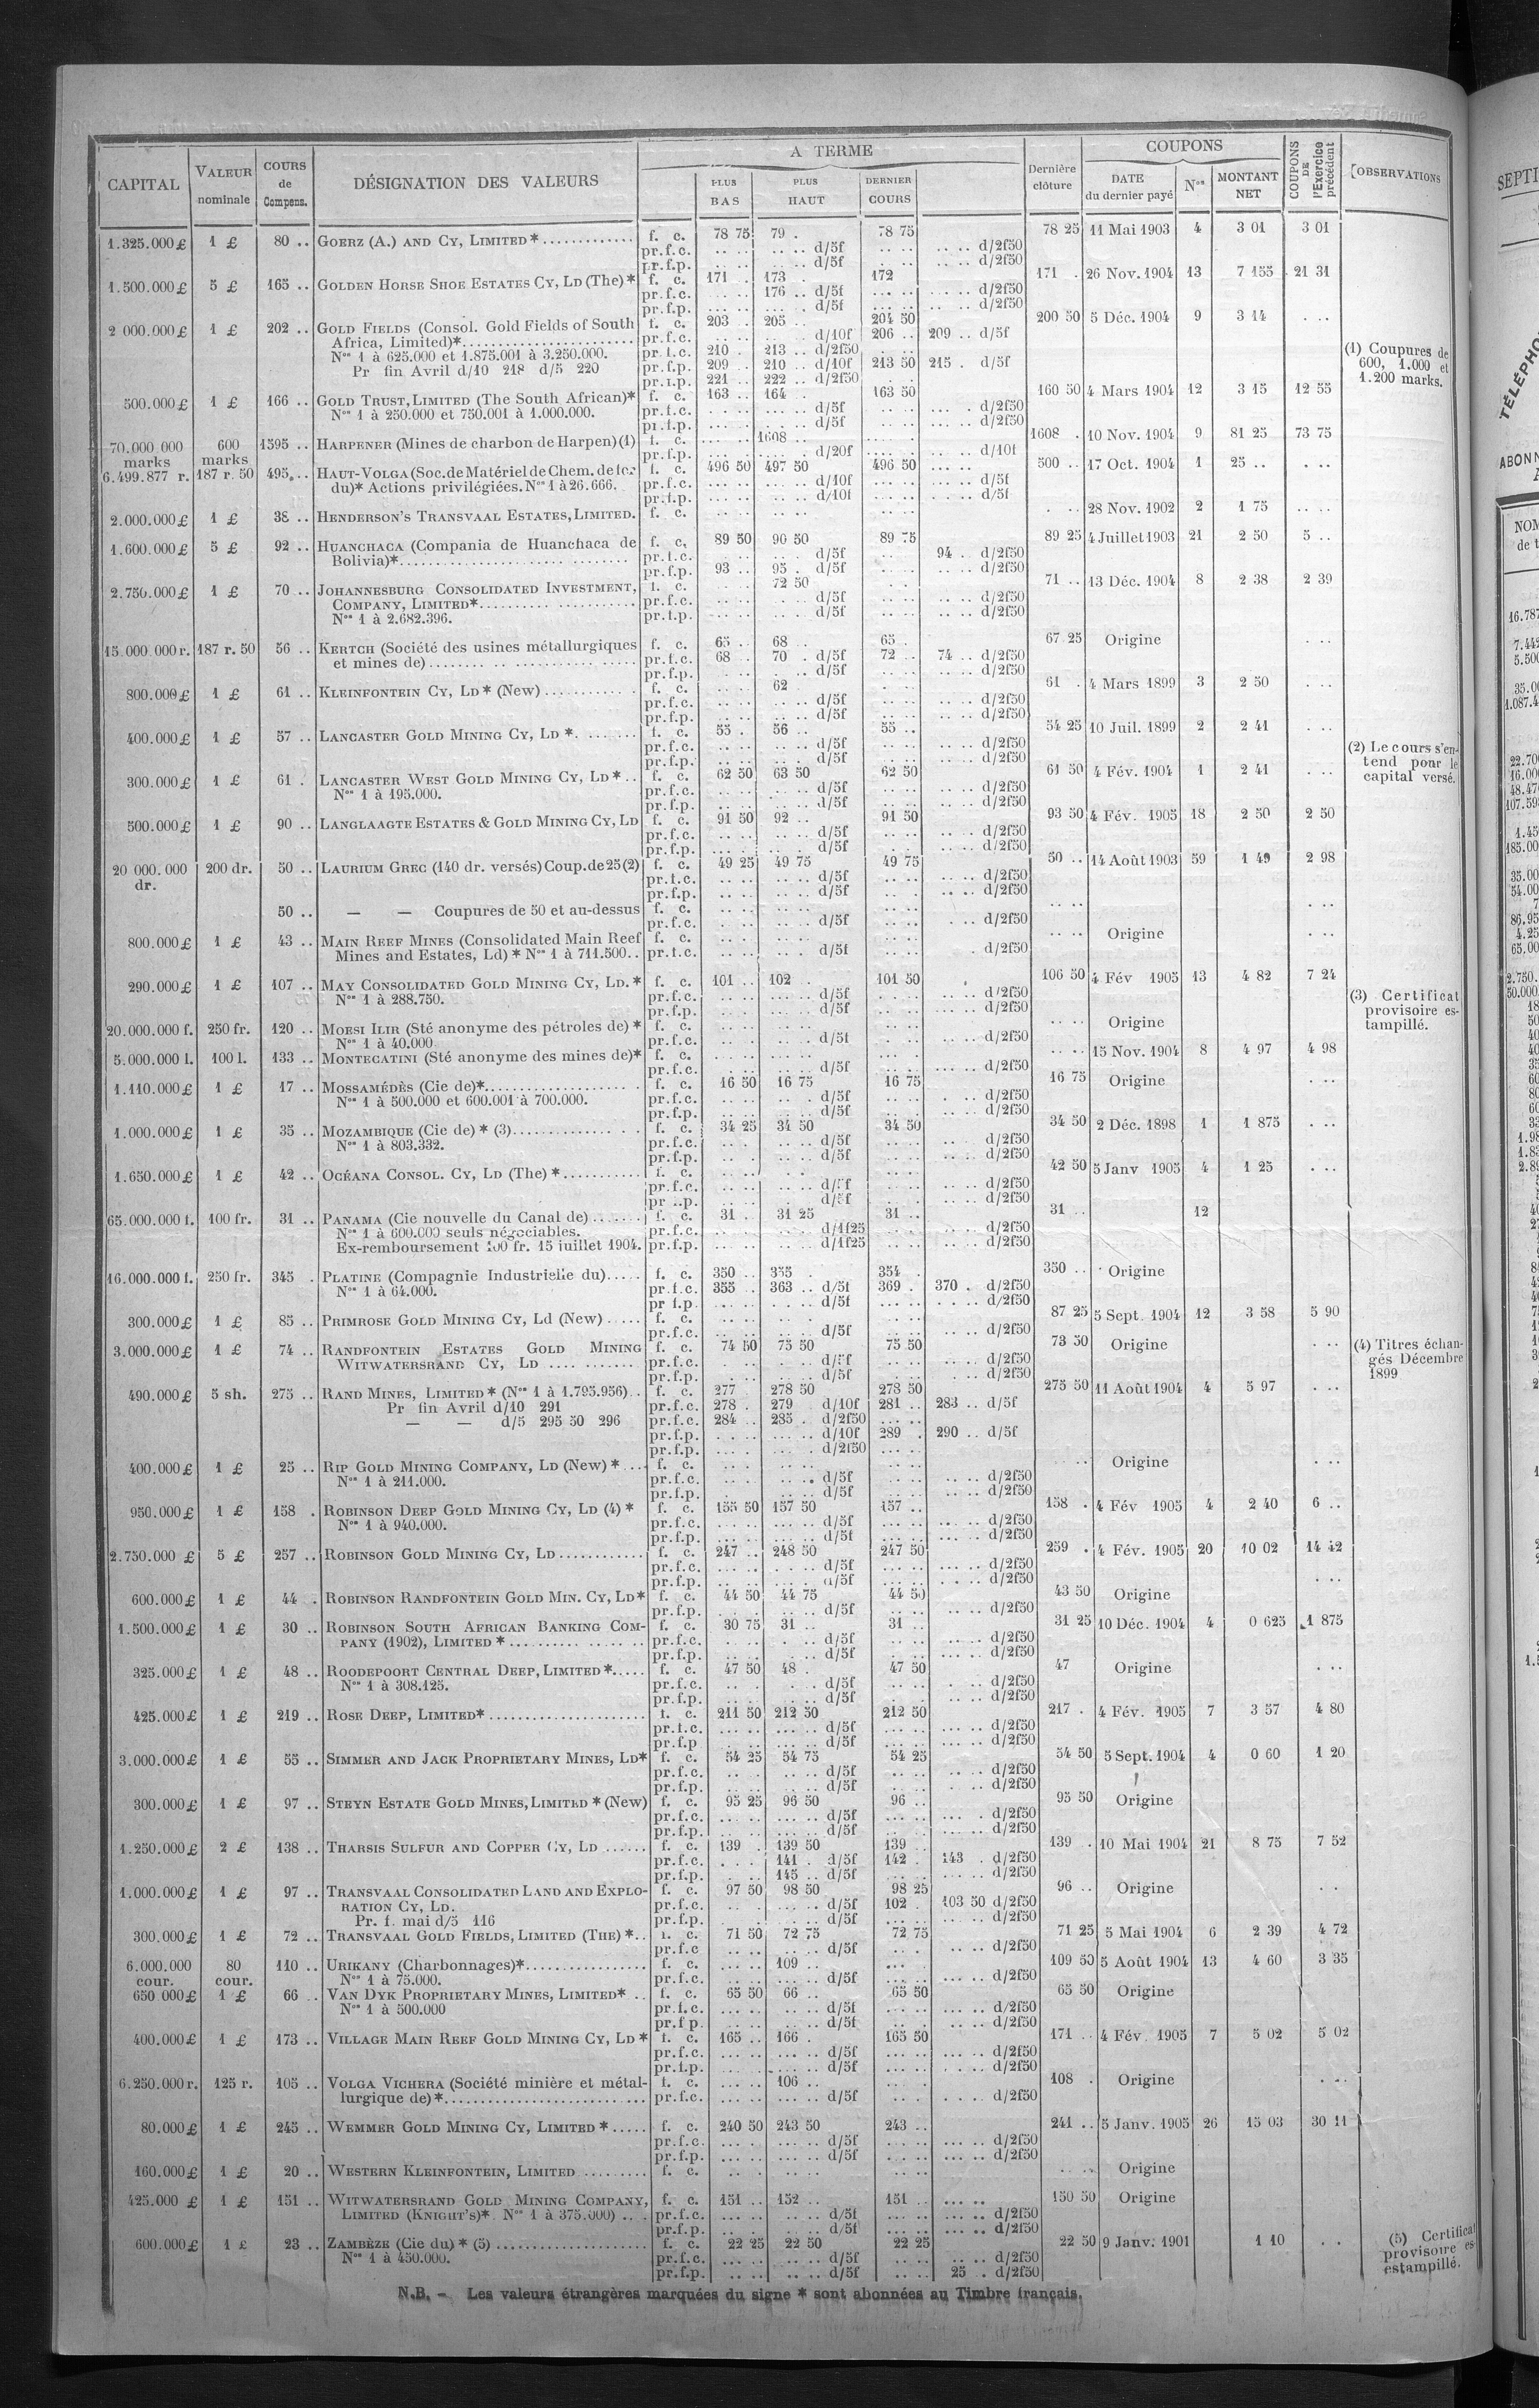 CAPITAL | VALEUR nominale | COURS de Compens. | DÉSIGNATION DES VALEURS | A TERME | PLUS BAS | PLUS HAUT | DERNIER COURS | Dernière clôture | COUPONS | DATE du dernier payé | Nos | MONTANT NET | COUPONS DE l'Exercice précédent | OBSERVATIONS
1.325.000 £ 1 £ 80 .. GOERZ (A.) AND CY, LIMITED * f. c. 78 75 79 . 78 75 78 25 11 Mai 1903 4 3 01 3 01
pr.f.c. d/5f d/2f50
pr.f.p. d/5f d/2f50
1.500.000 £ 5 £ 165 .. GOLDEN HORSE SHOE ESTATES CY, LD (The) * f. c. 171 . 173 . 172 171 . 26 Nov. 1904 13 7 155 21 31
pr.f.c. 176 .. d/5f d/2f50
pr.f.p. d/5f d/2f50
2 000.000 £ 1 £ 202 .. GOLD FIELDS (Consol. Gold Fields of South f. c. 203 .. 205 .. 204 50 200 50 5 Déc. 1904 9 3 14
Africa, Limited)* pr.f.c. d/10f 206 .. 209 .. d/5f
Nos 1 à 625.000 et 1.875.001 à 3.250.000. pr.f.c. 210 . 213 .. d/2f50
Pr fin Avril d/10 218 d/5 220 pr.f.p. 209 . 210 .. d/10f 213 50 215 . d/5f
pr.f.p. 221 .. 222 .. d/2f50
(1) Coupures de
600, 1.000 et
1.200 marks.
500.000 £ 1 £ 166 .. GOLD TRUST, LIMITED (The South African)* f. c. 163 .. 164 . 163 50 160 50 4 Mars 1904 12 3 15 12 55
Nos 1 à 250.000 et 750.001 à 1.000.000. pr.f.c. d/5f d/2f50
pr.f.p. d/5f d/2f50
70.000 000 marks 600 marks 1595 .. HARPENER (Mines de charbon de Harpen) (1) f. c. 1608 .. 1608 . 10 Nov. 1904 9 81 25 73 75
pr.f.p. d/20f d/10f
6.499.877 r. 187 r. 50 495 .. HAUT-VOLGA (Soc. de Matériel de Chem. de fer f. c. 496 50 497 50 496 50 500 .. 17 Oct. 1904 1 25 ..
du)* Actions privilégiées. Nos 1 à 26.666. pr.f.c. d/10f d/5f
pr.f.p. d/10f d/5f
2.000.000 £ 1 £ 38 .. HENDERSON'S TRANSVAAL ESTATES, LIMITED. f. c. 28 Nov. 1902 2 1 75
1.600.000 £ 5 £ 92 .. HUANCHACA (Compania de Huanchaca de f. c. 89 50 90 50 89 75 89 25 4 Juillet 1903 21 2 50 5 ..
Bolivia)* pr.f.c. d/5f 94 .. d/2f50
pr.f.p. 93 .. 95 . d/5f d/2f50
2.750.000 £ 1 £ 70 .. JOHANNESBURG CONSOLIDATED INVESTMENT, f. c. 72 50 71 .. 13 Déc. 1904 8 2 38 2 39
COMPANY, LIMITED* pr.f.c. d/5f d/2f50
Nos 1 à 2.682.396. pr.f.p. d/5f d/2f50
15.000.000 r. 187 r. 50 56 .. KERTCH (Société des usines métallurgiques f. c. 65 .. 68 .. 65 . 67 25 Origine
et mines de) pr.f.c. 68 .. 70 . d/5f 72 .. 74 .. d/2f50
pr.f.p. d/5f d/2f50
800.000 £ 1 £ 61 .. KLEINFONTEIN CY, LD * (New) f. c. 62 61 . 4 Mars 1899 3 2 50
pr.f.c. d/5f d/2f50
pr.f.p. d/5f d/2f50
400.000 £ 1 £ 57 .. LANCASTER GOLD MINING CY, LD * f. c. 55 . 56 .. 55 .. 54 25 10 Juil. 1899 2 2 41
pr.f.c. d/5f d/2f50
pr.f.p. d/5f d/2f50
(2) Le cours s'en-
tend pour le
capital versé.
300.000 £ 1 £ 61 . LANCASTER WEST GOLD MINING CY, LD * f. c. 62 50 63 50 62 50 61 50 4 Fév. 1904 1 2 41
Nos 1 à 195.000. pr.f.c. d/5f d/2f50
pr.f.p. d/5f d/2f50
500.000 £ 1 £ 90 .. LANGLAAGTE ESTATES & GOLD MINING CY, LD f. c. 91 50 92 .. 91 50 93 50 4 Fév. 1905 18 2 50 2 50
pr.f.c. d/5f d/2f50
pr.f.p. d/5f d/2f50
20 000.000 dr. 200 dr. 50 .. LAURIUM GREC (140 dr. versés) Coup. de 25 (2) f. c. 49 25 49 75 49 75 50 .. 14 Août 1903 59 1 49 2 98
pr.f.c. d/5f d/2f50
pr.f.p. d/5f d/2f50
50 .. — — Coupures de 50 et au-dessus f. c.
pr.f.c. d/5f d/2f50
800.000 £ 1 £ 43 .. MAIN REEF MINES (Consolidated Main Reef f. c. Origine
Mines and Estates, Ld) * Nos 1 à 711.500 pr.f.c. d/5f d/2f50
290.000 £ 1 £ 107 .. MAY CONSOLIDATED GOLD MINING CY, LD. * f. c. 101 .. 102 101 50 106 50 4 Fév 1905 13 4 82 7 24
Nos 1 à 288.750. pr.f.c. d/5f d/2f50
pr.f.p. d/5f d/2f50
(3) Certificat
provisoire es-
tampillé.
20.000.000 f. 250 fr. 120 .. MOESI ILIR (Sté anonyme des pétroles de) * f. c. Origine
Nos 1 à 40.000 pr.f.c. d/5f d/2f50
5.000.000 l. 100 l. 133 .. MONTECATINI (Sté anonyme des mines de)* f. c. 15 Nov. 1904 8 4 97 4 98
pr.f.c. d/5f d/2f50
1.110.000 £ 1 £ 17 .. MOSSAMÉDÈS (Cie de)* f. c. 16 50 16 75 16 75 16 75 Origine
Nos 1 à 500.000 et 600.001 à 700.000. pr.f.c. d/5f d/2f50
pr.f.p. d/5f d/2f50
1.000.000 £ 1 £ 35 .. MOZAMBIQUE (Cie de) * (3) f. c. 34 25 34 50 34 50 34 50 2 Déc. 1898 1 1 875
Nos 1 à 803.332. pr.f.c. d/5f d/2f50
pr.f.p. d/5f d/2f50
1.650.000 £ 1 £ 42 .. OCÉANA CONSOL. CY, LD (The) * f. c. 42 50 5 Janv 1905 4 1 25
pr.f.c. d/5f d/2f50
pr.f.p. d/5f d/2f50
65.000.000 f. 100 fr. 31 .. PANAMA (Cie nouvelle du Canal de) f. c. 31 . 31 25 31 .. 31 .. 12
Nos 1 à 600.000 seuls négociables. pr.f.c. d/1f25 d/2f50
Ex-remboursement 100 fr. 15 juillet 1904. pr.f.p. d/1f25 d/2f50
16.000.000 f. 250 fr. 345 . PLATINE (Compagnie Industrielle du) f. c. 350 .. 355 . 354 . 350 .. Origine
Nos 1 à 64.000. pr.f.c. 355 .. 363 .. d/5f 369 . 370 . d/2f50
pr.f.p. d/5f d/2f50
300.000 £ 1 £ 85 .. PRIMROSE GOLD MINING CY, Ld (New) f. c. 87 25 5 Sept. 1904 12 3 58 5 90
pr.f.c. d/5f d/2f50
3.000.000 £ 1 £ 74 .. RANDFONTEIN ESTATES GOLD MINING f. c. 74 50 75 50 75 50 73 50 Origine
WITWATERSRAND CY, LD pr.f.c. d/5f d/2f50
pr.f.p. d/5f d/2f50
(4) Titres échan-
gés Décembre
1899
490.000 £ 5 sh. 275 .. RAND MINES, LIMITED * (Nos 1 à 1.795.956) f. c. 277 278 50 278 50 275 50 11 Août 1904 4 5 97
Pr fin Avril d/10 291 pr.f.c. 278 . 279 d/10f 281 .. 283 .. d/5f
— — d/5 295 50 296 pr.f.c. 284 .. 285 . d/2f50
pr.f.p. d/10f 289 . 290 .. d/5f
pr.f.p. d/2f50
400.000 £ 1 £ 25 .. RIP GOLD MINING COMPANY, LD (New) * f. c. Origine
Nos 1 à 211.000. pr.f.c. d/5f d/2f50
pr.f.p. d/5f d/2f50
950.000 £ 1 £ 158 . ROBINSON DEEP GOLD MINING CY, LD (4) * f. c. 155 50 157 50 157 .. 158 . 4 Fév 1905 4 2 40 6 ..
Nos 1 à 940.000. pr.f.c. d/5f d/2f50
pr.f.p. d/5f d/2f50
2.750.000 £ 5 £ 257 .. ROBINSON GOLD MINING CY, LD f. c. 247 .. 248 50 247 50 259 . 4 Fév. 1905 20 10 02 14 42
pr.f.c. d/5f d/2f50
pr.f.p. d/5f d/2f50
600.000 £ 1 £ 44 . ROBINSON RANDFONTEIN GOLD MIN. CY, LD* f. c. 44 50 44 75 44 50 43 50 Origine
pr.f.p. d/5f d/2f50
1.500.000 £ 1 £ 30 .. ROBINSON SOUTH AFRICAN BANKING COM- f. c. 30 75 31 .. 31 .. 31 25 10 Déc. 1904 4 0 625 1 875
PANY (1902), LIMITED * pr.f.c. d/5f d/2f50
pr.f.p. d/5f d/2f50
325.000 £ 1 £ 48 .. ROODEPOORT CENTRAL DEEP, LIMITED * f. c. 47 50 48 . 47 50 47 Origine
Nos 1 à 308.125. pr.f.c. d/5f d/2f50
pr.f.p. d/5f d/2f50
425.000 £ 1 £ 219 .. ROSE DEEP, LIMITED* f. c. 211 50 212 50 212 50 217 . 4 Fév. 1905 7 3 57 4 80
pr.f.c. d/5f d/2f50
pr.f.p d/5f d/2f50
3.000.000 £ 1 £ 55 .. SIMMER AND JACK PROPRIETARY MINES, LD* f. c. 54 25 54 75 54 25 54 50 5 Sept. 1904 4 0 60 1 20
pr.f.c. d/5f d/2f50
pr.f.p. d/5f d/2f50
300.000 £ 1 £ 97 .. STEYN ESTATE GOLD MINES, LIMITED * (New) f. c. 95 25 96 50 96 .. 95 50 Origine
pr.f.c. d/5f d/2f50
pr.f.p. d/5f d/2f50
1.250.000 £ 2 £ 138 .. THARSIS SULFUR AND COPPER CY, LD f. c. 139 . 139 50 139 139 . 10 Mai 1904 21 8 75 7 52
pr.f.c. 141 . d/5f 142 . 143 . d/2f50
pr.f.p. 145 .. d/5f d/2f50
1.000.000 £ 1 £ 97 .. TRANSVAAL CONSOLIDATED LAND AND EXPLO- f. c. 97 50 98 50 98 25 96 .. Origine
RATION CY, LD. pr.f.c. d/5f 102 . 103 50 d/2f50
Pr. f. mai d/5 116 pr.f.p. d/5f d/2f50
300.000 £ 1 £ 72 .. TRANSVAAL GOLD FIELDS, LIMITED (THE) * f. c. 71 50 72 75 72 75 71 25 5 Mai 1904 6 2 39 4 72
pr.f.c d/5f d/2f50
6.000.000 cour. 80 cour. 110 .. URIKANY (Charbonnages)* f. c. 109 .. 109 50 5 Août 1904 13 4 60 3 35
Nos 1 à 75.000. pr.f.c. d/5f d/2f50
650 000 £ 1 £ 66 .. VAN DYK PROPRIETARY MINES, LIMITED* f. c. 65 50 66 .. 65 50 65 50 Origine
Nos 1 à 500.000 pr.f.c. d/5f d/2f50
pr.f p. d/5f d/2f50
400.000 £ 1 £ 173 .. VILLAGE MAIN REEF GOLD MINING CY, LD * f. c. 165 .. 166 . 165 50 171 .. 4 Fév. 1905 7 5 02 5 02
pr.f.c. d/5f d/2f50
pr.f.p. d/5f d/2f50
6.250.000 r. 125 r. 105 .. VOLGA VICHERA (Société minière et métal- f. c. 106 .. 108 . Origine
lurgique de) * pr.f.c. d/5f d/2f50
80.000 £ 1 £ 245 .. WEMMER GOLD MINING CY, LIMITED * f. c. 240 50 243 50 243 .. 241 .. 5 Janv. 1905 26 15 03 30 11
pr.f.c. d/5f d/2f50
pr.f.p. d/5f d/2f50
160.000 £ 1 £ 20 .. WESTERN KLEINFONTEIN, LIMITED f. c. Origine
425.000 £ 1 £ 151 .. WITWATERSRAND GOLD MINING COMPANY, f. c. 151 .. 152 .. 151 .. 150 50 Origine
LIMITED (KNIGHT'S)* Nos 1 à 375.000) pr.f.c. d/5f d/2f50
pr.f.p. d/5f d/2f50
600.000 £ 1 £ 23 .. ZAMBÈZE (Cie du) * (5) f. c. 22 25 22 50 22 25 22 50 9 Janv. 1901 1 10
Nos 1 à 450.000. pr.f.c. d/5f d/2f50
pr.f.p. d/5f 25 . d/2f50
(5) Certificat
provisoire es
estampillé.
N.B. — Les valeurs étrangères marquées du signe * sont abonnées au Timbre français.
SEPTI
TÉLÉPHO
ABONN
NOM
de t